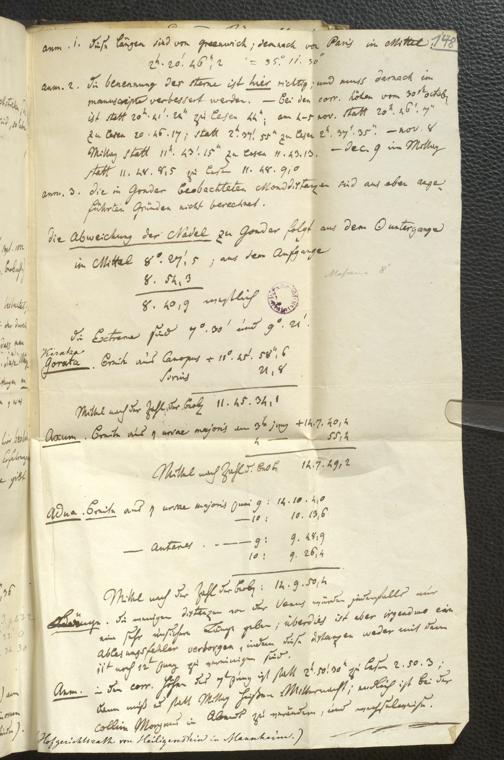 148
anm. 1. Diese Längen sind von greenwich; demnach von Paris im Mittel
2h. 20. 46", 2 = 35°. 11. 30"
anm. 2. Die benennung der sterne ist hier richtig, und muss darnach im
manuscripte verbessert werden. — Bei den corr. höhen vom 30ten octob.
ist statt 20h. 41'. 24" zu lesen 44"; am 4-5 nov. statt 20h. 46'. 7"
zu lesen 20. 46. 17; statt 2h. 37'. 55" zu lesen 2h. 37'. 35". — nov. 8
Mittag statt 11h. 43'. 15" zu lesen 11. 43. 13. — Dec. 9 im Mittag
statt 11. 48. 8,5 zu lesen 11. 48. 9,0
anm. 3. die in Gondar beobachteten Monddistanzen sind aus oben ange
führten Gründen nicht berechnet.
die Abweichung der Nadel zu Gondar folgt aus dem ☉ untergange
im Mittel 8°. 27', 5; aus dem Aufgange
8. 54, 3
8. 40, 9 westlich
die Extreme sind 7°. 30' und 9°. 21'.
Gorata. Breite aus Canopus + 11°. 45'. 58", 6
Sirius 21, 8
Mittel nach der Zahl der beob. 11. 45. 34, 1
Axum. Breite aus η ursae majoris am 3ten juny +14. 7. 40, 4
4 — 55, 4
Mittel nach Zahl d. beob. 14. 7. 49, 2
Adua. Breite aus η ursae majoris juni 9: 14. 10. 4, 0
— 10: 10. 13, 6
— Antares — 9: 9. 48, 9
10: 9. 26, 4
Mittel nach der Zahl der beob: 14. 9. 50, 4
Die wenigen distanzen von der Venus würden jedenfalls nur
eine sehr unsichere Länge geben; überdies ist aber irgendwo ein
Ablesungsfehler verborgen, indem diese distanzen weder mit dem
11t noch 12t juny zu vereinigen sind.
Anm. in den corr. Höhen des juny ist statt 2h. 50'. 30" zu lesen 2. 50. 3;
dann muss es statt Mittag heissen Mitternacht; endlich ist bei der
Morgens in Abends zu verändern, und
(Hofgerichtsrath von Heiligenstein in Mannheim.)